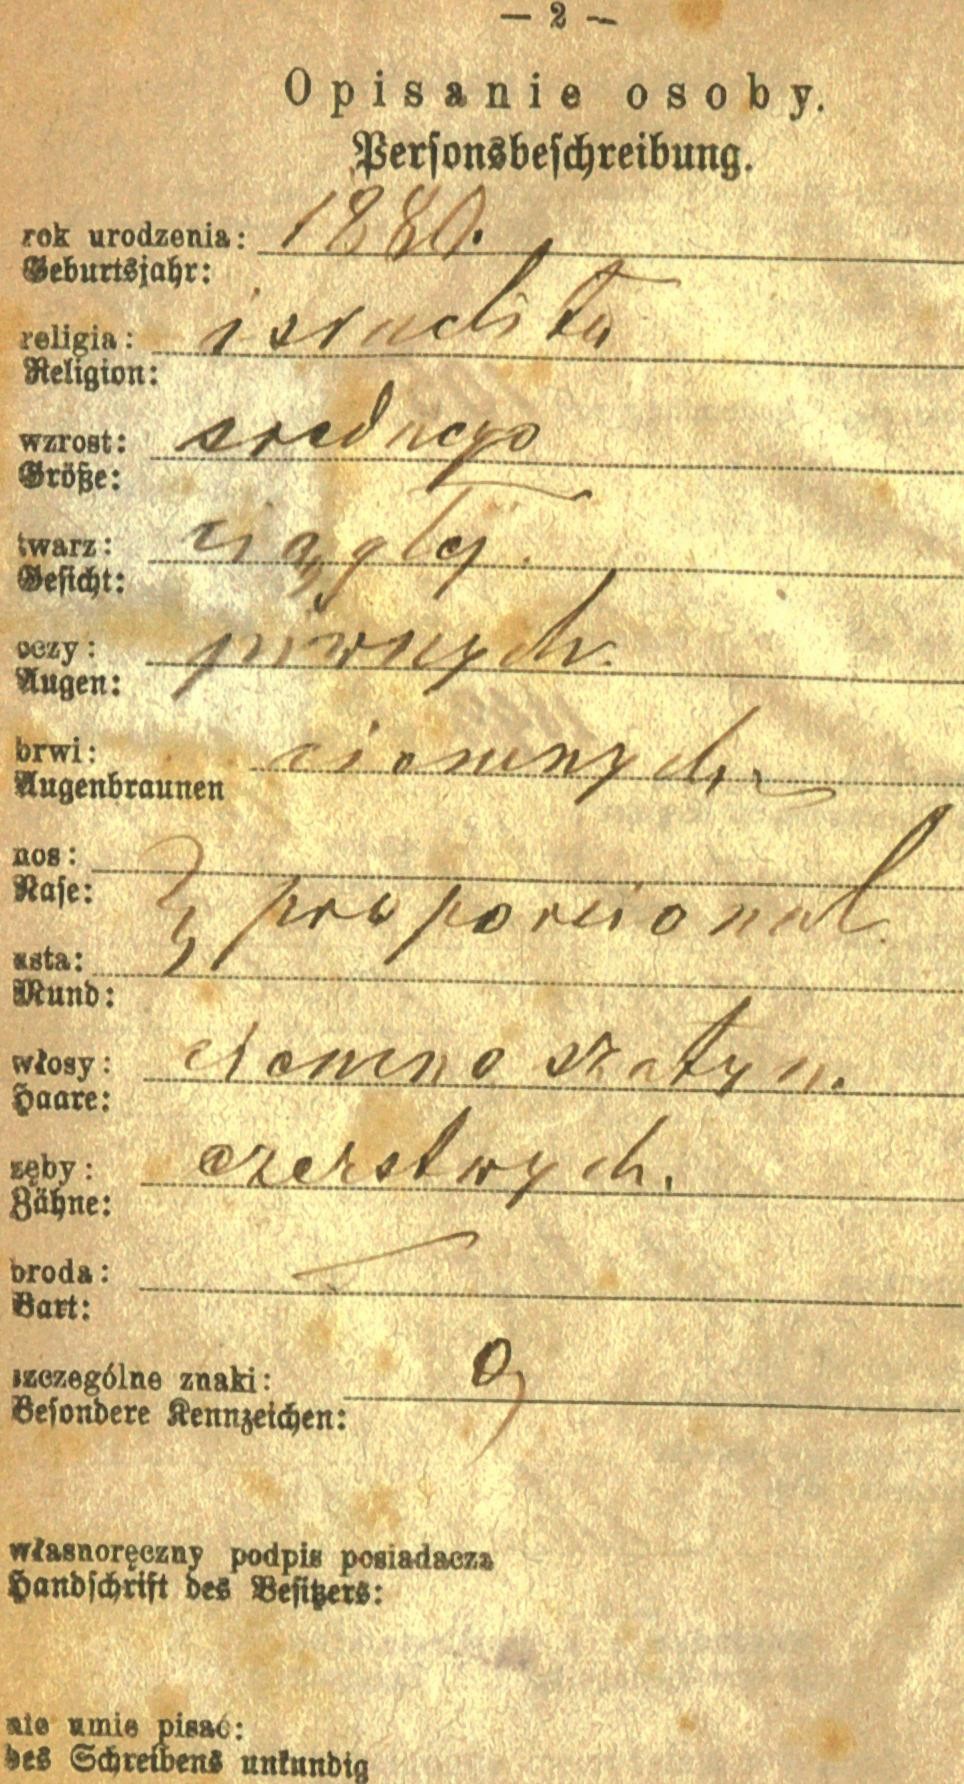 — 2 —
Opisanie osoby.
Personsbeschreibung.
rok urodzenia: 1880.
Geburtsjahr:
religia: israelita
Religion:
wzrost: srednego
Größe:
twarz: ciągłej.
Gesicht:
oczy: piwnych.
Augen:
brwi: ciemnych
Augenbraunen
nos:
Nase:
} proporcional.
usta:
Mund:
włosy: ciemno szatyn.
Haare:
zęby: czerstwych.
Zähne:
broda: —
Bart:
szczególne znaki: 0
Besondere Kennzeichen:
własnoręczny podpis posiadacza
Handschrift des Besitzers:
nie umie pisać:
des Schreibens unkundig